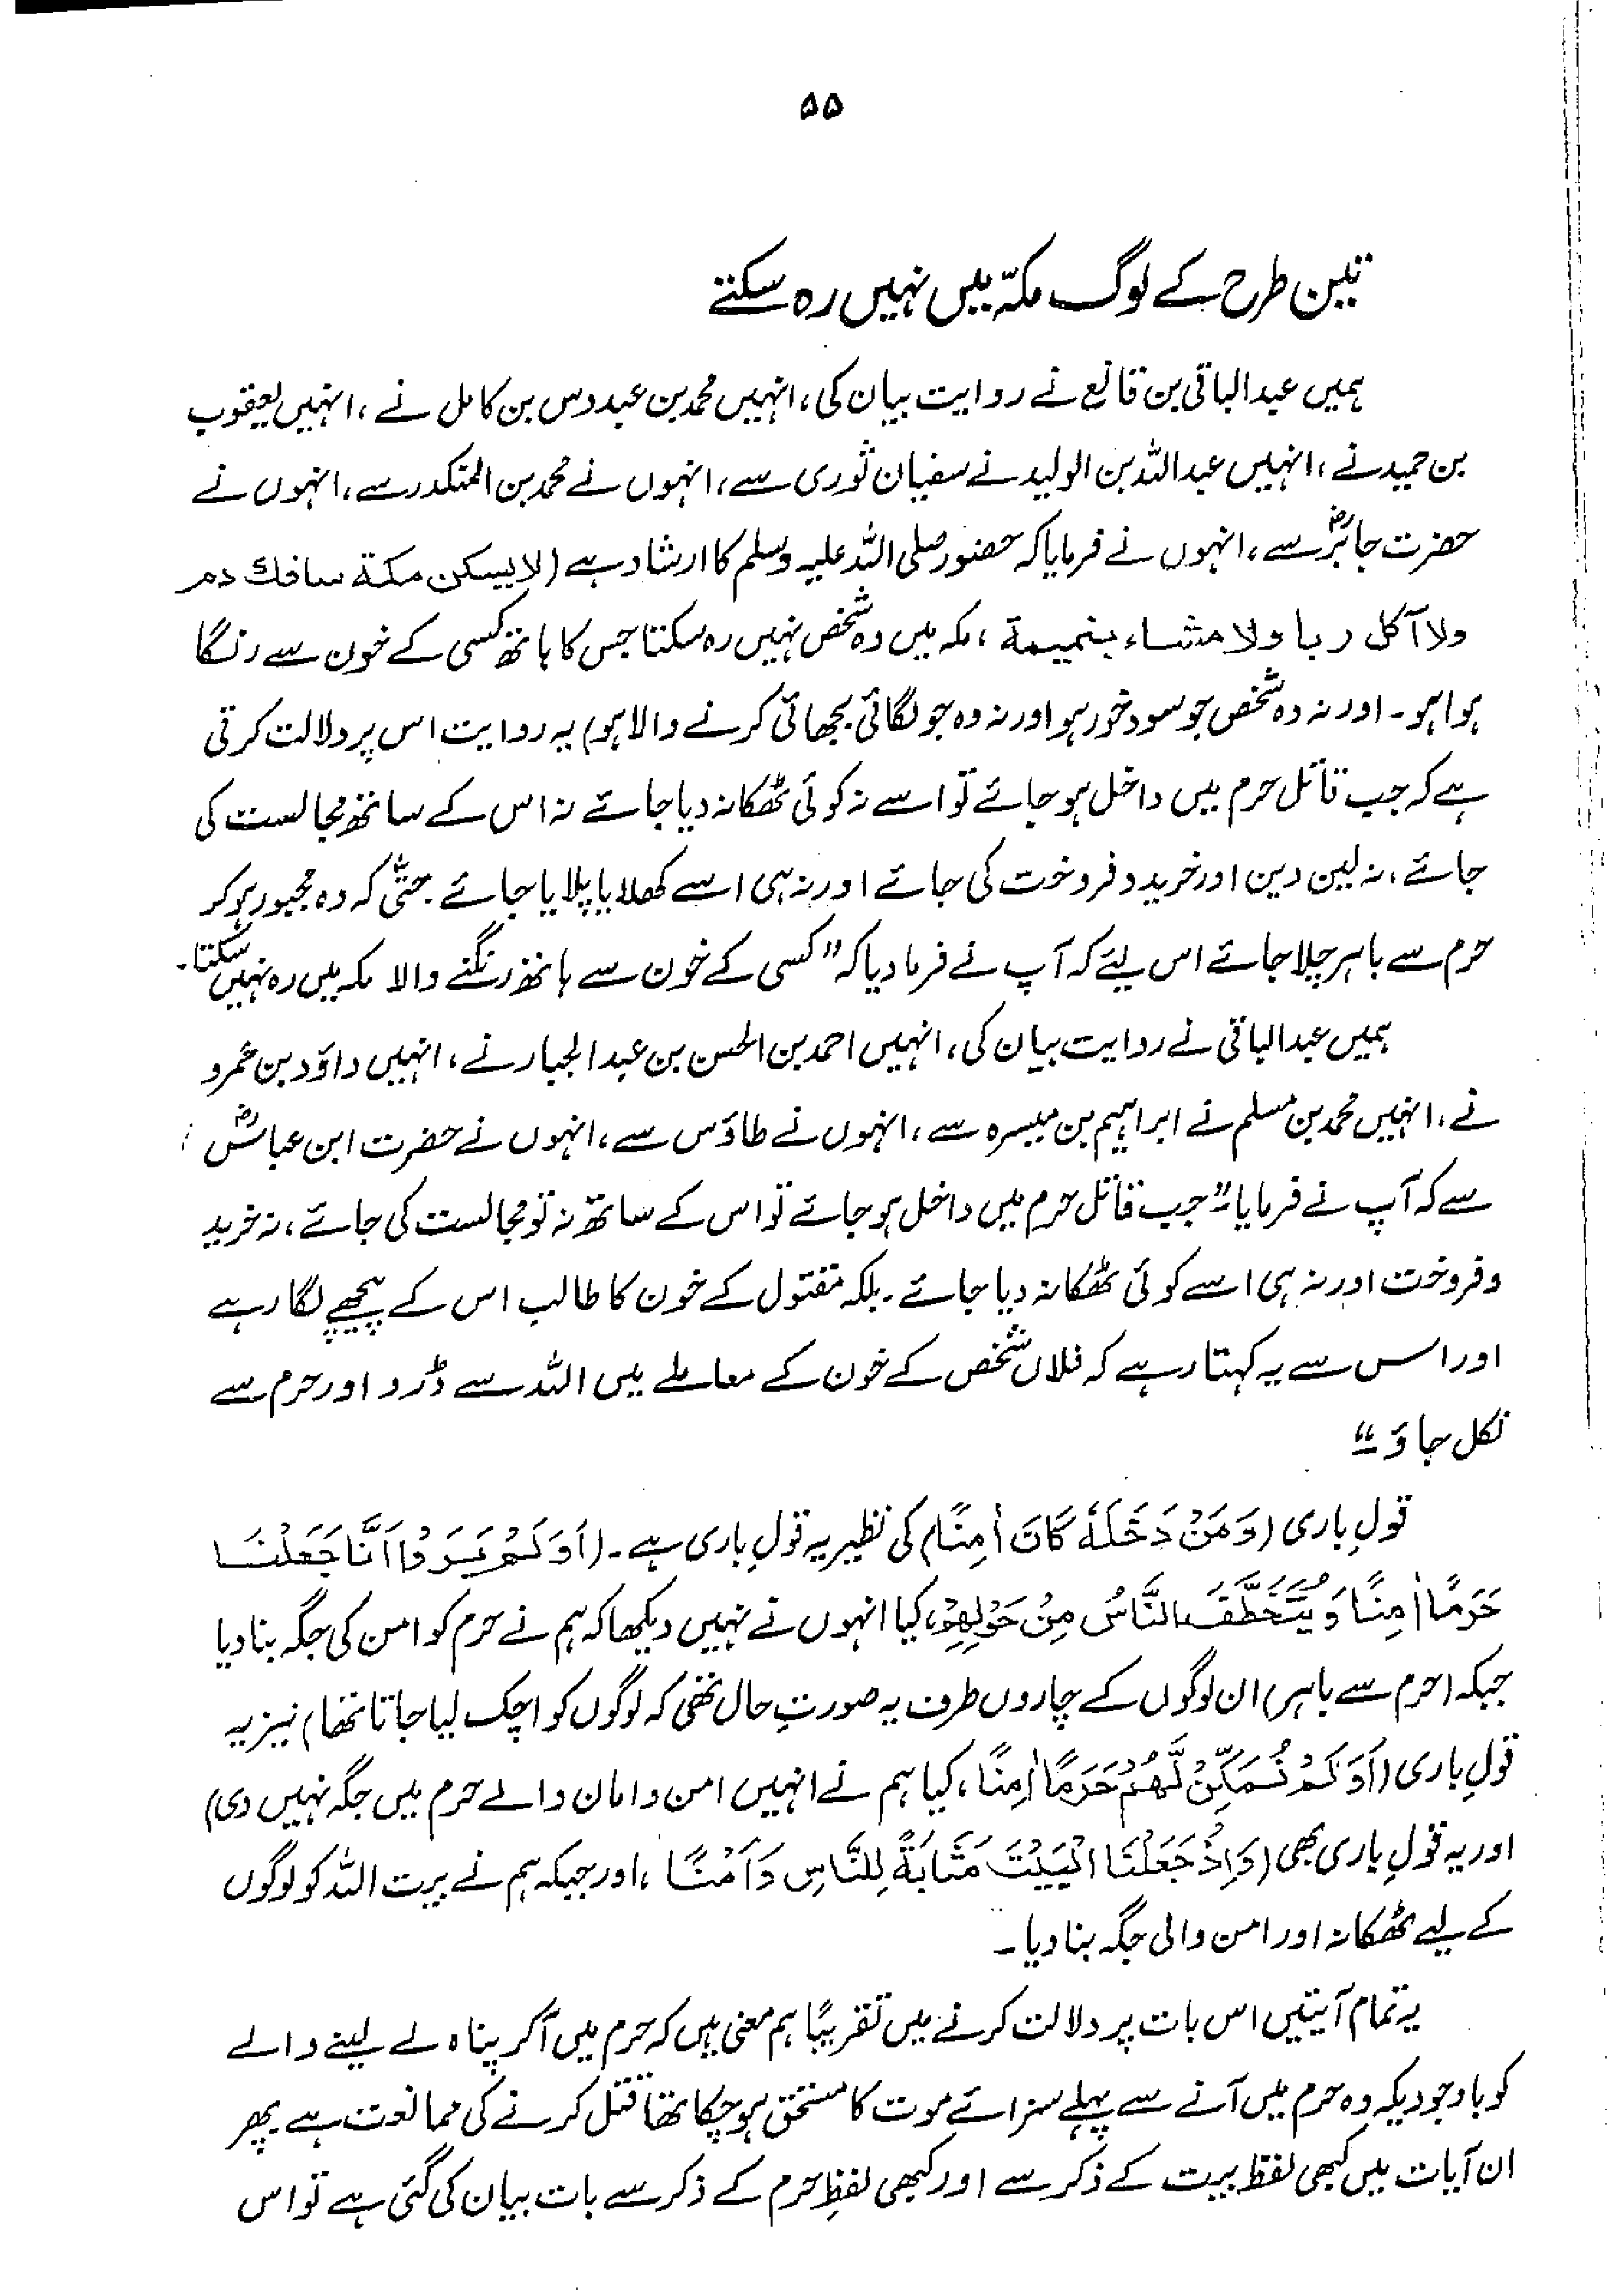 ۵۵
تین طرح کے لوگ مکّہ میں نہیں رہ سکتے
ہمیں عبدالباقی بن قانع نے روایت بیان کی، انہیں محمد بن عبدوس بن کامل نے، انہیں یعقوب
بن حمید نے، انہیں عبداللہ بن الولید نے سفیان ثوری سے، انہوں نے محمد بن المنکدر سے، انہوں نے
حضرت جابرؓ سے، انہوں نے فرمایا کہ حضور صلی اللہ علیہ وسلم کا ارشاد ہے (لا یسکن مکة سافك دم
ولا آکل ربا ولا مشاء بنمیمة، مکہ میں وہ شخص نہیں رہ سکتا جس کا ہاتھ کسی کے خون سے رنگا
ہوا ہو۔ اور نہ وہ شخص جو سود خور ہو اور نہ وہ جو لگائی بجھائی کرنے والا ہو) یہ روایت اس پر دلالت کرتی
ہے کہ جب قاتل حرم میں داخل ہو جائے تو اسے نہ کوئی ٹھکانہ دیا جائے نہ اس کے ساتھ مجالست کی
جائے، نہ لین دین اور خرید و فروخت کی جائے اور نہ ہی اسے کھلایا پلایا جائے حتّٰی کہ وہ مجبور ہو کر
حرم سے باہر چلا جائے اس لیئے کہ آپ نے فرما دیا کہ " کسی کے خون سے ہاتھ رنگنے والا مکہ میں رہ نہیں سکتا۔
ہمیں عبدالباقی نے روایت بیان کی، انہیں احمد بن الحسن بن عبدالجبار نے، انہیں داؤد بن عمرو
نے، انہیں محمد بن مسلم نے ابراہیم بن میسرہ سے، انہوں نے طاؤس سے، انہوں نے حضرت ابن عباسؓ
سے کہ آپ نے فرمایا: " جب قاتل حرم میں داخل ہو جائے تو اس کے ساتھ نہ تو مجالست کی جائے، نہ خرید
و فروخت اور نہ ہی اسے کوئی ٹھکانہ دیا جائے۔ بلکہ مقتول کے خون کا طالب اس کے پیچھے لگا رہے
اور اس سے یہ کہتا رہے کہ فلاں شخص کے خون کے معاملے میں اللہ سے ڈرو اور حرم سے
نکل جاؤ ۔"
قولِ باری (وَمَنْ دَخَلَهٗ كَانَ اٰمِنًا) کی نظیر یہ قولِ باری ہے۔ (اَوَلَمْ يَرَوْا اَنَّا جَعَلْنَا
حَرَمًا اٰمِنًا وَّيُتَخَطَّفُ النَّاسُ مِنْ حَوْلِهِمْ، کیا انہوں نے نہیں دیکھا کہ ہم نے حرم کو امن کی جگہ بنا دیا
جبکہ (حرم سے باہر) ان لوگوں کے چاروں طرف یہ صورتِ حال تھی کہ لوگوں کو اچک لیا جاتا تھا) نیز یہ
قولِ باری (اَوَلَمْ نُمَكِّنْ لَّهُمْ حَرَمًا اٰمِنًا، کیا ہم نے انہیں امن و امان والے حرم میں جگہ نہیں دی)
اور یہ قولِ باری بھی (وَاِذْ جَعَلْنَا الْبَيْتَ مَثَابَةً لِلنَّاسِ وَاَمْنًا، اور جبکہ ہم نے بیت اللہ کو لوگوں
کے لیے ٹھکانہ اور امن والی جگہ بنا دیا۔
یہ تمام آیتیں اس بات پر دلالت کرنے میں تقریبًا ہم معنی ہیں کہ حرم میں آکر پناہ لے لینے والے
کو باوجودیکہ وہ حرم میں آنے سے پہلے سزائے موت کا مستحق ہو چکا تھا قتل کرنے کی ممانعت ہے پھر
ان آیات میں کبھی لفظ بیت کے ذکر سے اور کبھی لفظِ حرم کے ذکر سے بات بیان کی گئی ہے تو اس